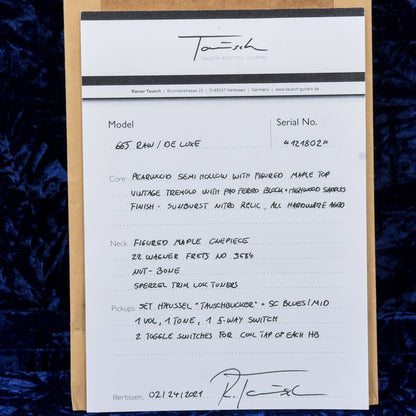 Tausch
TAUSCH ELECTRIC GUITARS
Rainer Tausch | Brunnenstrasse 25 | D.89257 Illertissen | Germany | www.tausch-guitars.com
Model Serial No.
665 RAW / DE LUXE "121802"
Core PEARWOOD SEMI HOLLOW WITH FIGURED MAPLE TOP
VINTAGE TREMOLO WITH PAO FERRO BLOCK + HIGHWOOD SADDLES
FINISH - SUNBURST NITRO RELIC, ALL HARDWARE AGED
Neck FIGURED MAPLE ONEPIECE
22 WAGNER FRETS NO 9684
NUT - BONE
SPERZEL TRIM LOK TUNERS
Pickups SET HÄUSSEL "TAUSCHBUCKER" + SC BLUES/MID
1 VOL, 1 TONE, 1 5-WAY SWITCH
2 TOGGLE SWITCHES FOR COIL TAP OF EACH HB
Illertissen, 02/24/2021 R. Tausch